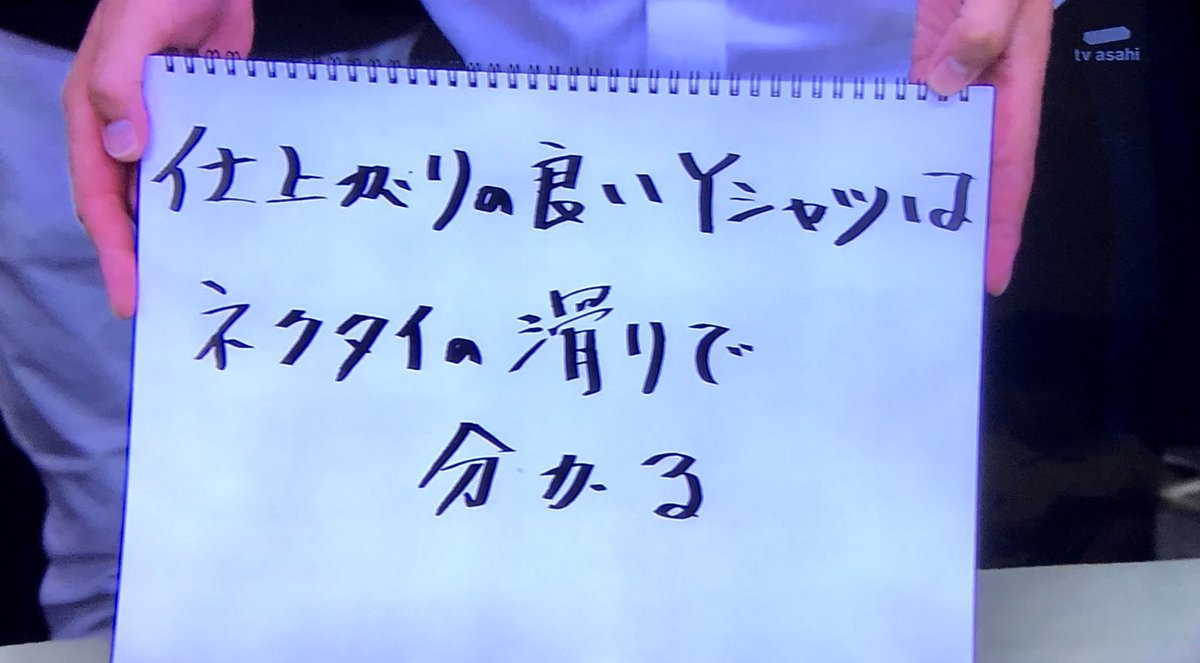 tv asahi
仕上がりの良いYシャツは
ネクタイの滑りで
分かる